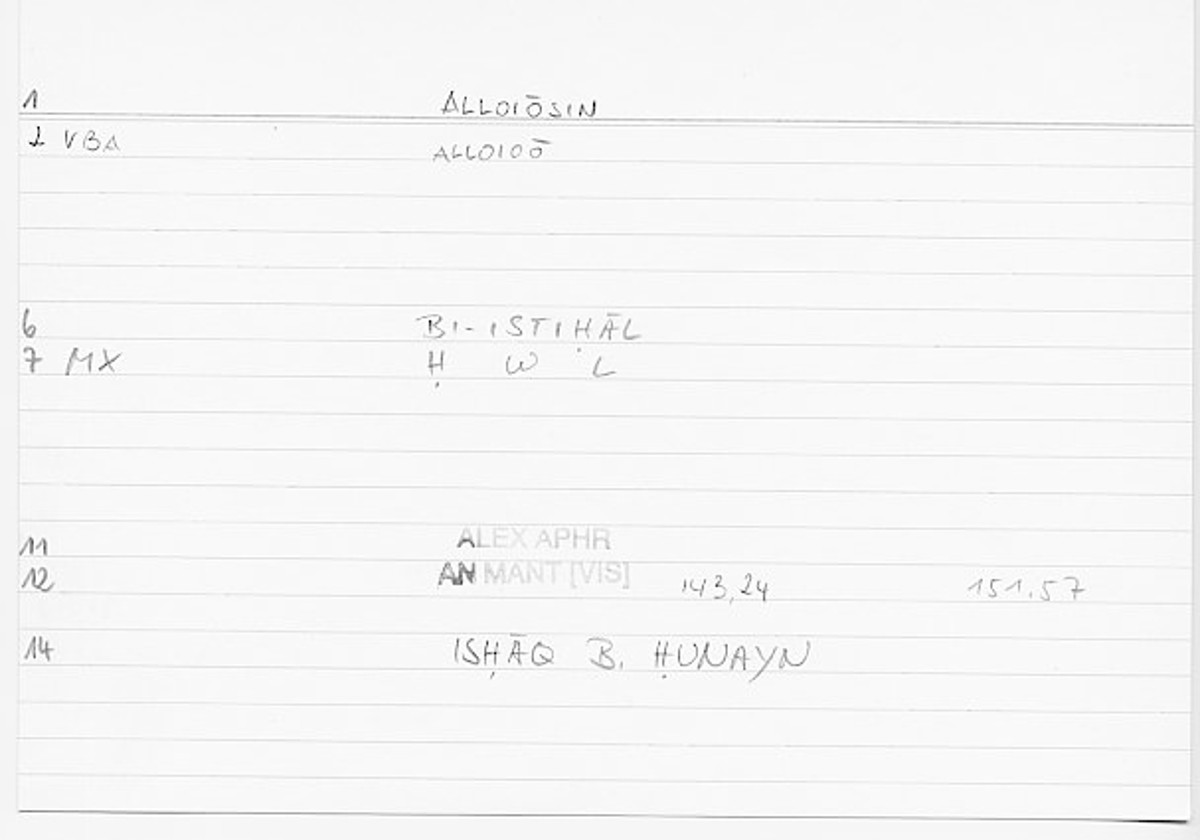 1 ALLOIŌSIN
2 VBA ALLOIOŌ
6 BI-ISTIḤĀL
7 MX Ḥ W L
11 ALEX APHR
12 AN MANT [VIS] 143,24 151.57
14 ISḤĀQ B. ḤUNAYN